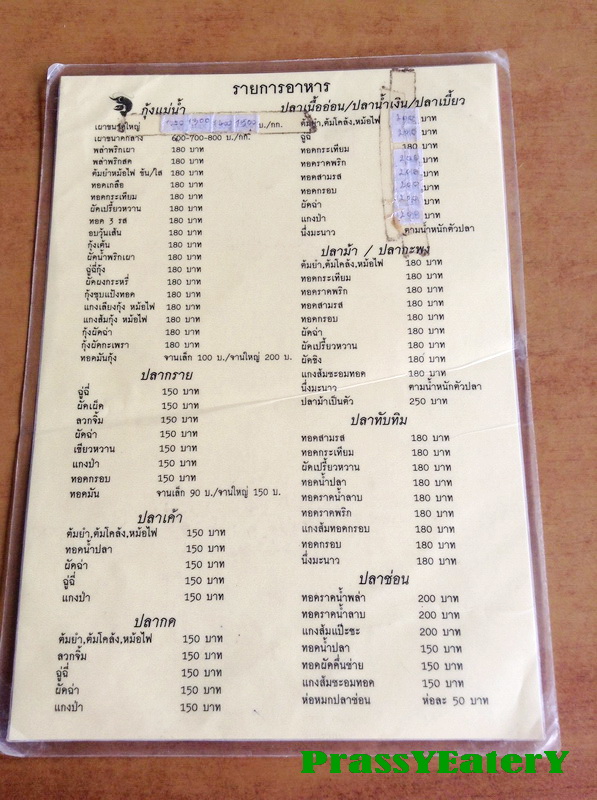 รายการอาหาร
กุ้งแม่น้ำ
เผาขนาดใหญ่ บ./กก.
เผาขนาดกลาง 600-700-800 บ./กก.
พล่าพริกเผา 180 บาท
พล่าพริกสด 180 บาท
ต้มยำหม้อไฟ ข้น/ใส 180 บาท
ทอดเกลือ 180 บาท
ทอดกระเทียม 180 บาท
ผัดเปรี้ยวหวาน 180 บาท
ทอด 3 รส 180 บาท
อบวุ้นเส้น 180 บาท
กุ้งเต้น 180 บาท
ผัดน้ำพริกเผา 180 บาท
ฉู่ฉี่กุ้ง 180 บาท
ผัดผงกระหรี่ 180 บาท
กุ้งชุบแป้งทอด 180 บาท
แกงเลียงกุ้ง หม้อไฟ 180 บาท
แกงส้มกุ้ง หม้อไฟ 180 บาท
กุ้งผัดฉ่า 180 บาท
กุ้งผัดกะเพรา 180 บาท
ทอดมันกุ้ง จานเล็ก 100 บ./จานใหญ่ 200 บ.
ปลากราย
ฉู่ฉี่ 150 บาท
ผัดเผ็ด 150 บาท
ลวกจิ้ม 150 บาท
ผัดฉ่า 150 บาท
เขียวหวาน 150 บาท
แกงป่า 150 บาท
ทอดกรอบ 150 บาท
ทอดมัน จานเล็ก 90 บ./จานใหญ่ 150 บ.
ปลาเค้า
ต้มยำ,ต้มโคล้ง,หม้อไฟ 150 บาท
ทอดน้ำปลา 150 บาท
ผัดฉ่า 150 บาท
ฉู่ฉี่ 150 บาท
แกงป่า 150 บาท
ปลากด
ต้มยำ,ต้มโคล้ง,หม้อไฟ 150 บาท
ลวกจิ้ม 150 บาท
ฉู่ฉี่ 150 บาท
ผัดฉ่า 150 บาท
แกงป่า 150 บาท
ปลาเนื้ออ่อน/ปลาน้ำเงิน/ปลาเบี้ยว
ต้มยำ,ต้มโคล้ง,หม้อไฟ 200 บาท
ฉู่ฉี่ 200 บาท
ทอดกระเทียม 180 บาท
ทอดราดพริก 200 บาท
ทอดสามรส 200 บาท
ทอดกรอบ 200 บาท
ผัดฉ่า 200 บาท
แกงป่า 200 บาท
นึ่งมะนาว ตามน้ำหนักตัวปลา
ปลาม้า / ปลากะพง
ต้มยำ,ต้มโคล้ง,หม้อไฟ 180 บาท
ทอดกระเทียม 180 บาท
ทอดราดพริก 180 บาท
ทอดสามรส 180 บาท
ทอดกรอบ 180 บาท
ผัดฉ่า 180 บาท
ผัดเปรี้ยวหวาน 180 บาท
ผัดขิง 180 บาท
แกงส้มชะอมทอด 180 บาท
นึ่งมะนาว ตามน้ำหนักตัวปลา
ปลาม้าเป็นตัว 250 บาท
ปลาทับทิม
ทอดสามรส 180 บาท
ทอดกระเทียม 180 บาท
ผัดเปรี้ยวหวาน 180 บาท
ทอดน้ำปลา 180 บาท
ทอดราดน้ำลาบ 180 บาท
ทอดราดพริก 180 บาท
แกงส้มทอดกรอบ 180 บาท
ทอดกรอบ 180 บาท
นึ่งมะนาว 180 บาท
ปลาช่อน
ทอดราดน้ำพล่า 200 บาท
ทอดราดน้ำลาบ 200 บาท
แกงส้มแป๊ะซะ 200 บาท
ทอดน้ำปลา 150 บาท
ทอดผัดคื่นช่าย 150 บาท
แกงส้มชะอมทอด 150 บาท
ห่อหมกปลาช่อน ห่อละ 50 บาท
PrassYEaterY